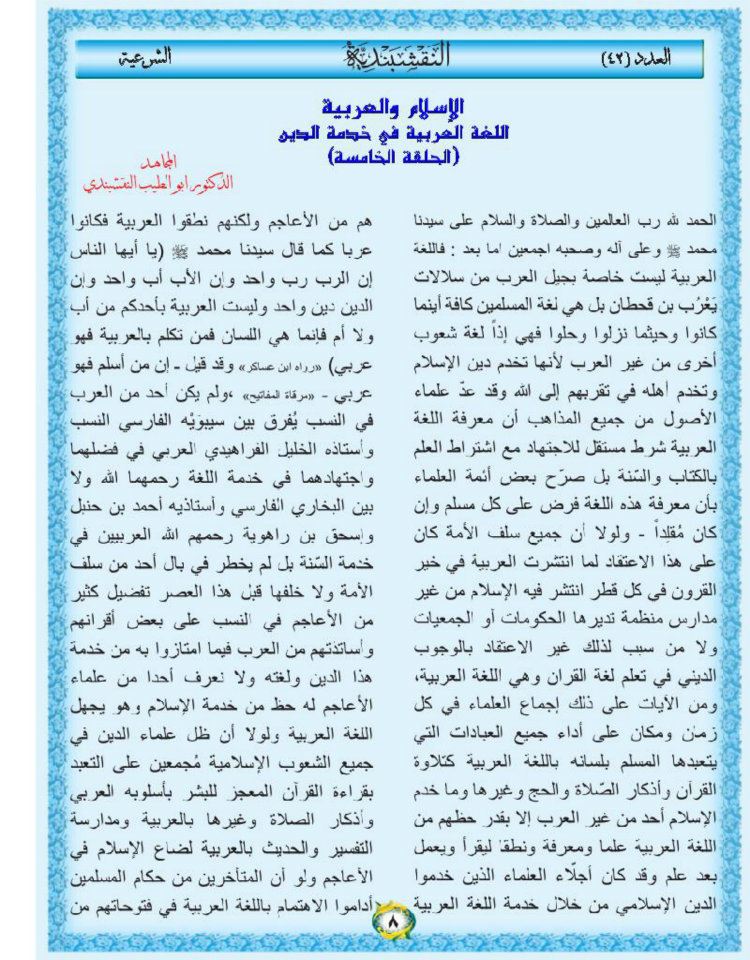 العدد (٤٢)
النقشبندية
الشرعية
الإسلام والعربية
اللغة العربية في خدمة الدين
(الحلقة الخامسة)
المجاهد
الدكتور ابو الطيب النقشبندي
الحمد لله رب العالمين والصلاة والسلام على سيدنا
محمد ﷺ وعلى آله وصحبه اجمعين اما بعد : فاللغة
العربية ليست خاصة بجيل العرب من سلالات
يَعْرُب بن قحطان بل هي لغة المسلمين كافة أينما
كانوا وحيثما نزلوا وحلوا فهي إذاً لغة شعوب
أخرى من غير العرب لأنها تخدم دين الإسلام
وتخدم أهله في تقربهم إلى الله وقد عدّ علماء
الأصول من جميع المذاهب أن معرفة اللغة
العربية شرط مستقل للاجتهاد مع اشتراط العلم
بالكتاب والسّنة بل صرّح بعض أئمة العلماء
بأن معرفة هذه اللغة فرض على كل مسلم وإن
كان مُقلِداً - ولولا أن جميع سلف الأمة كان
على هذا الاعتقاد لما انتشرت العربية في خير
القرون في كل قطر انتشر فيه الإسلام من غير
مدارس منظمة تديرها الحكومات أو الجمعيات
ولا من سبب لذلك غير الاعتقاد بالوجوب
الديني في تعلم لغة القران وهي اللغة العربية،
ومن الآيات على ذلك إجماع العلماء في كل
زمان ومكان على أداء جميع العبادات التي
يتعبدها المسلم بلسانه باللغة العربية كتلاوة
القرآن وأذكار الصّلاة والحج وغيرها وما خدم
الإسلام أحد من غير العرب إلا بقدر حظهم من
اللغة العربية علما ومعرفة ونطقا ليقرأ ويعمل
بعد علم وقد كان أجلّاء العلماء الذين خدموا
الدين الإسلامي من خلال خدمة اللغة العربية
هم من الأعاجم ولكنهم نطقوا العربية فكانوا
عربا كما قال سيدنا محمد ﷺ (يا أيها الناس
إن الرب رب واحد وإن الأب أب واحد وإن
الدين دين واحد وليست العربية بأحدكم من أب
ولا أم فإنما هي اللسان فمن تكلم بالعربية فهو
عربي) «رواه ابن عساكر» وقد قيل ـ إن من أسلم فهو
عربي - «مرقاة المفاتيح» ،ولم يكن أحد من العرب
في النسب يُفرق بين سيبوَيْه الفارسي النسب
وأستاذه الخليل الفراهيدي العربي في فضلهما
واجتهادهما في خدمة اللغة رحمهما الله ولا
بين البخاري الفارسي وأستاذيه أحمد بن حنبل
وإسحق بن راهوية رحمهم الله العربيين في
خدمة السّنة بل لم يخطر في بال أحد من سلف
الأمة ولا خلفها قبل هذا العصر تفضيل كثير
من الأعاجم في النسب على بعض أقرانهم
وأساتذتهم من العرب فيما امتازوا به من خدمة
هذا الدين ولغته ولا نعرف أحدا من علماء
الأعاجم له حظ من خدمة الإسلام وهو يجهل
اللغة العربية ولولا أن ظل علماء الدين في
جميع الشعوب الإسلامية مُجمعين على التعبد
بقراءة القرآن المعجز للبشر بأسلوبه العربي
وأذكار الصلاة وغيرها بالعربية ومدارسة
التفسير والحديث بالعربية لضاع الإسلام في
الأعاجم ولو أن المتأخرين من حكام المسلمين
أداموا الاهتمام باللغة العربية في فتوحاتهم من
٨